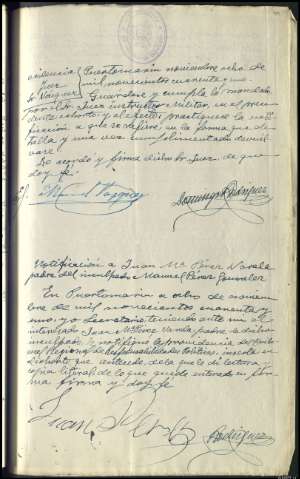 Providencia Puertomarin noviembre ocho de
Juez mil novecientos cuarenta y uno
Sr. Vazquez
Guardese y cumpla lo mandado
por el Sr. Juez instructor Militar, en el
exhorto y al efecto, practiquese la
a que se refiere, en la forma que
y una vez cumplimentado
Lo acordó y firma dicho Sr. Juez de que
doy fe.
Manuel Vazquez
Domingo Rodriguez
Notificación a Juan Mª Pérez Varela
padre del inculpado Manuel Pérez Gonzalez
En Puertomarin a ocho de noviem-
bre de mil novecientos cuarenta y
uno, yo Secretario teniendo ante mi al
interesado Juan Mª Pérez Varela padre de dicho
inculpado, le notifiqué la providencia del
Regional de Responsabilidades Politicas, inserta en
exhorto que antecede, dándole lectura
copia literal de lo que quedó enterado en
firma y doy fe
Juan
Rodriguez